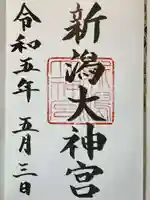 新潟大神宮
令和五年 五月三日